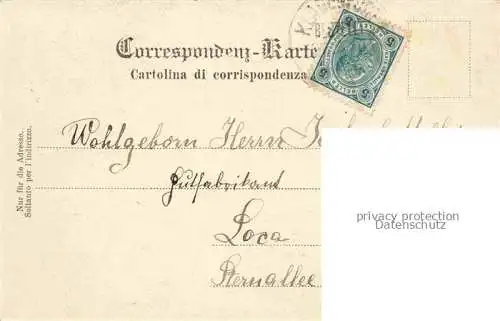 Correspondenz-Karte
Cartolina di corrispondenza
Nur für die Adresse.
Soltanto per l'indirizzo.
5 5
Wohlgeborn Herrn
Hutfabrikant
Loco
Sternallee
privacy protection
Datenschutz